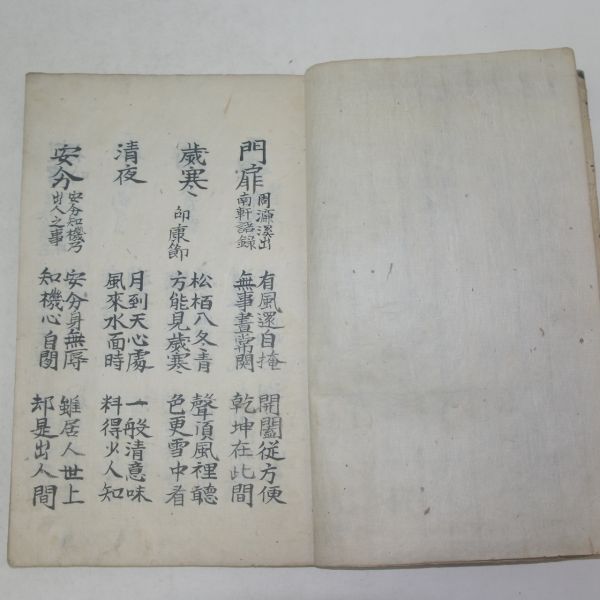 門扉
周濂溪出
南軒語錄
有風還自掩
無事晝常関
開闔從方便
乾坤在此間
歲寒
邵康節
松栢入冬青
方能見歲寒
聲須風裡聽
色更雪中看
清夜
月到天心處
風來水面時
一般清意味
料得少人知
安分
安分知機乃
出人之事
安分身無辱
知機心自閑
雖居人世上
却是出人間